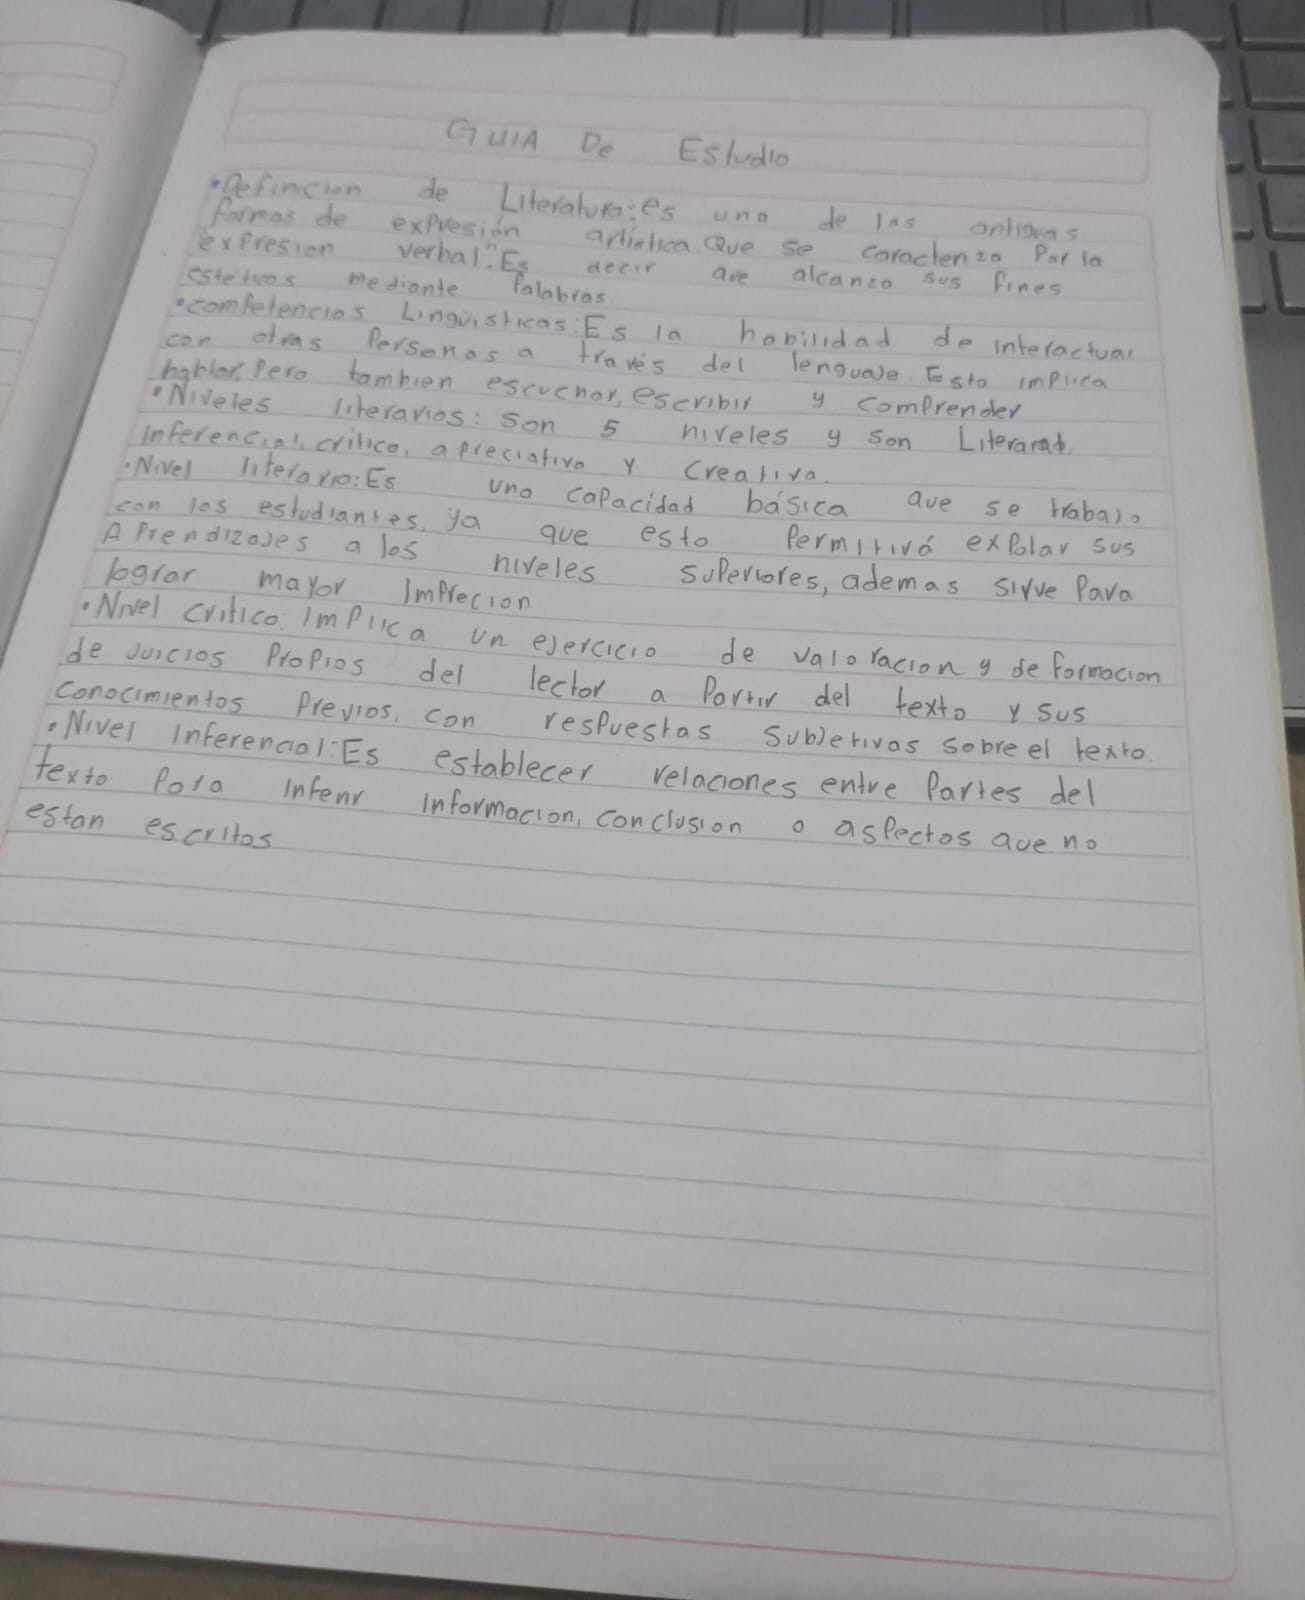 GUIA De Estudio
•Definicion de Literatura: es una de las antiguas
formas de expresión artistica. Que se caracteriza Por la
"expresion verbal". Es decir que alcanza sus fines
esteticos mediante Palabras.
•competencias Linguisticas: Es la habilidad de interactuar
con otras Personas a través del lenguaje. Esto implica
hablar, Pero tambien escuchar, escribir y comprender
•Niveles literarios: son 5 niveles y son
Inferencial, critico, apreciativa y creativa.
•Nivel literario: Es una capacidad básica que se trabaja
con los estudiantes, ya que esto Permitirá expolar sus
APrendizajes a los niveles superiores, ademas sirve Para
lograr mayor Imprecion
•Nivel critico: Implica un ejercicio de valoracion y de formacion
de Juicios Propios del lector a Partir del texto y sus
conocimientos Previos, con respuestas subjetivas sobre el texto.
•Nivel inferencial: Es establecer relaciones entre Partes del
texto Para inferir informacion, conclusion o aspectos que no
estan escritos